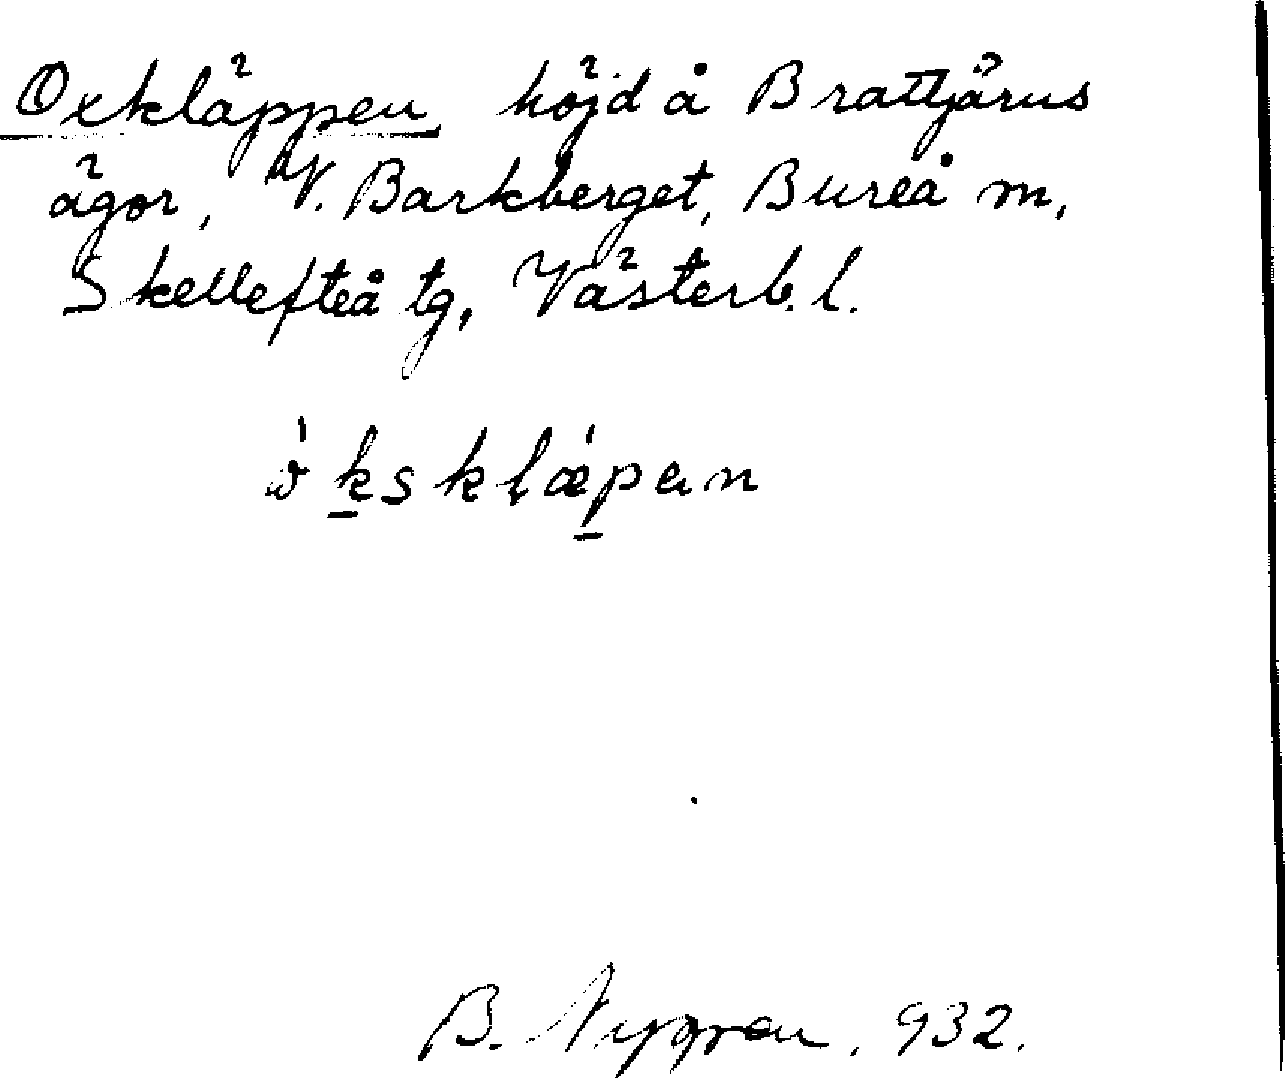 Oxkläppen höjd å Brattjärns
ägor, V. Barkberget, Bureå m,
Skellefteå tg, Västerb. l.
ò́ksklǽpan
B. Nygren. 932.